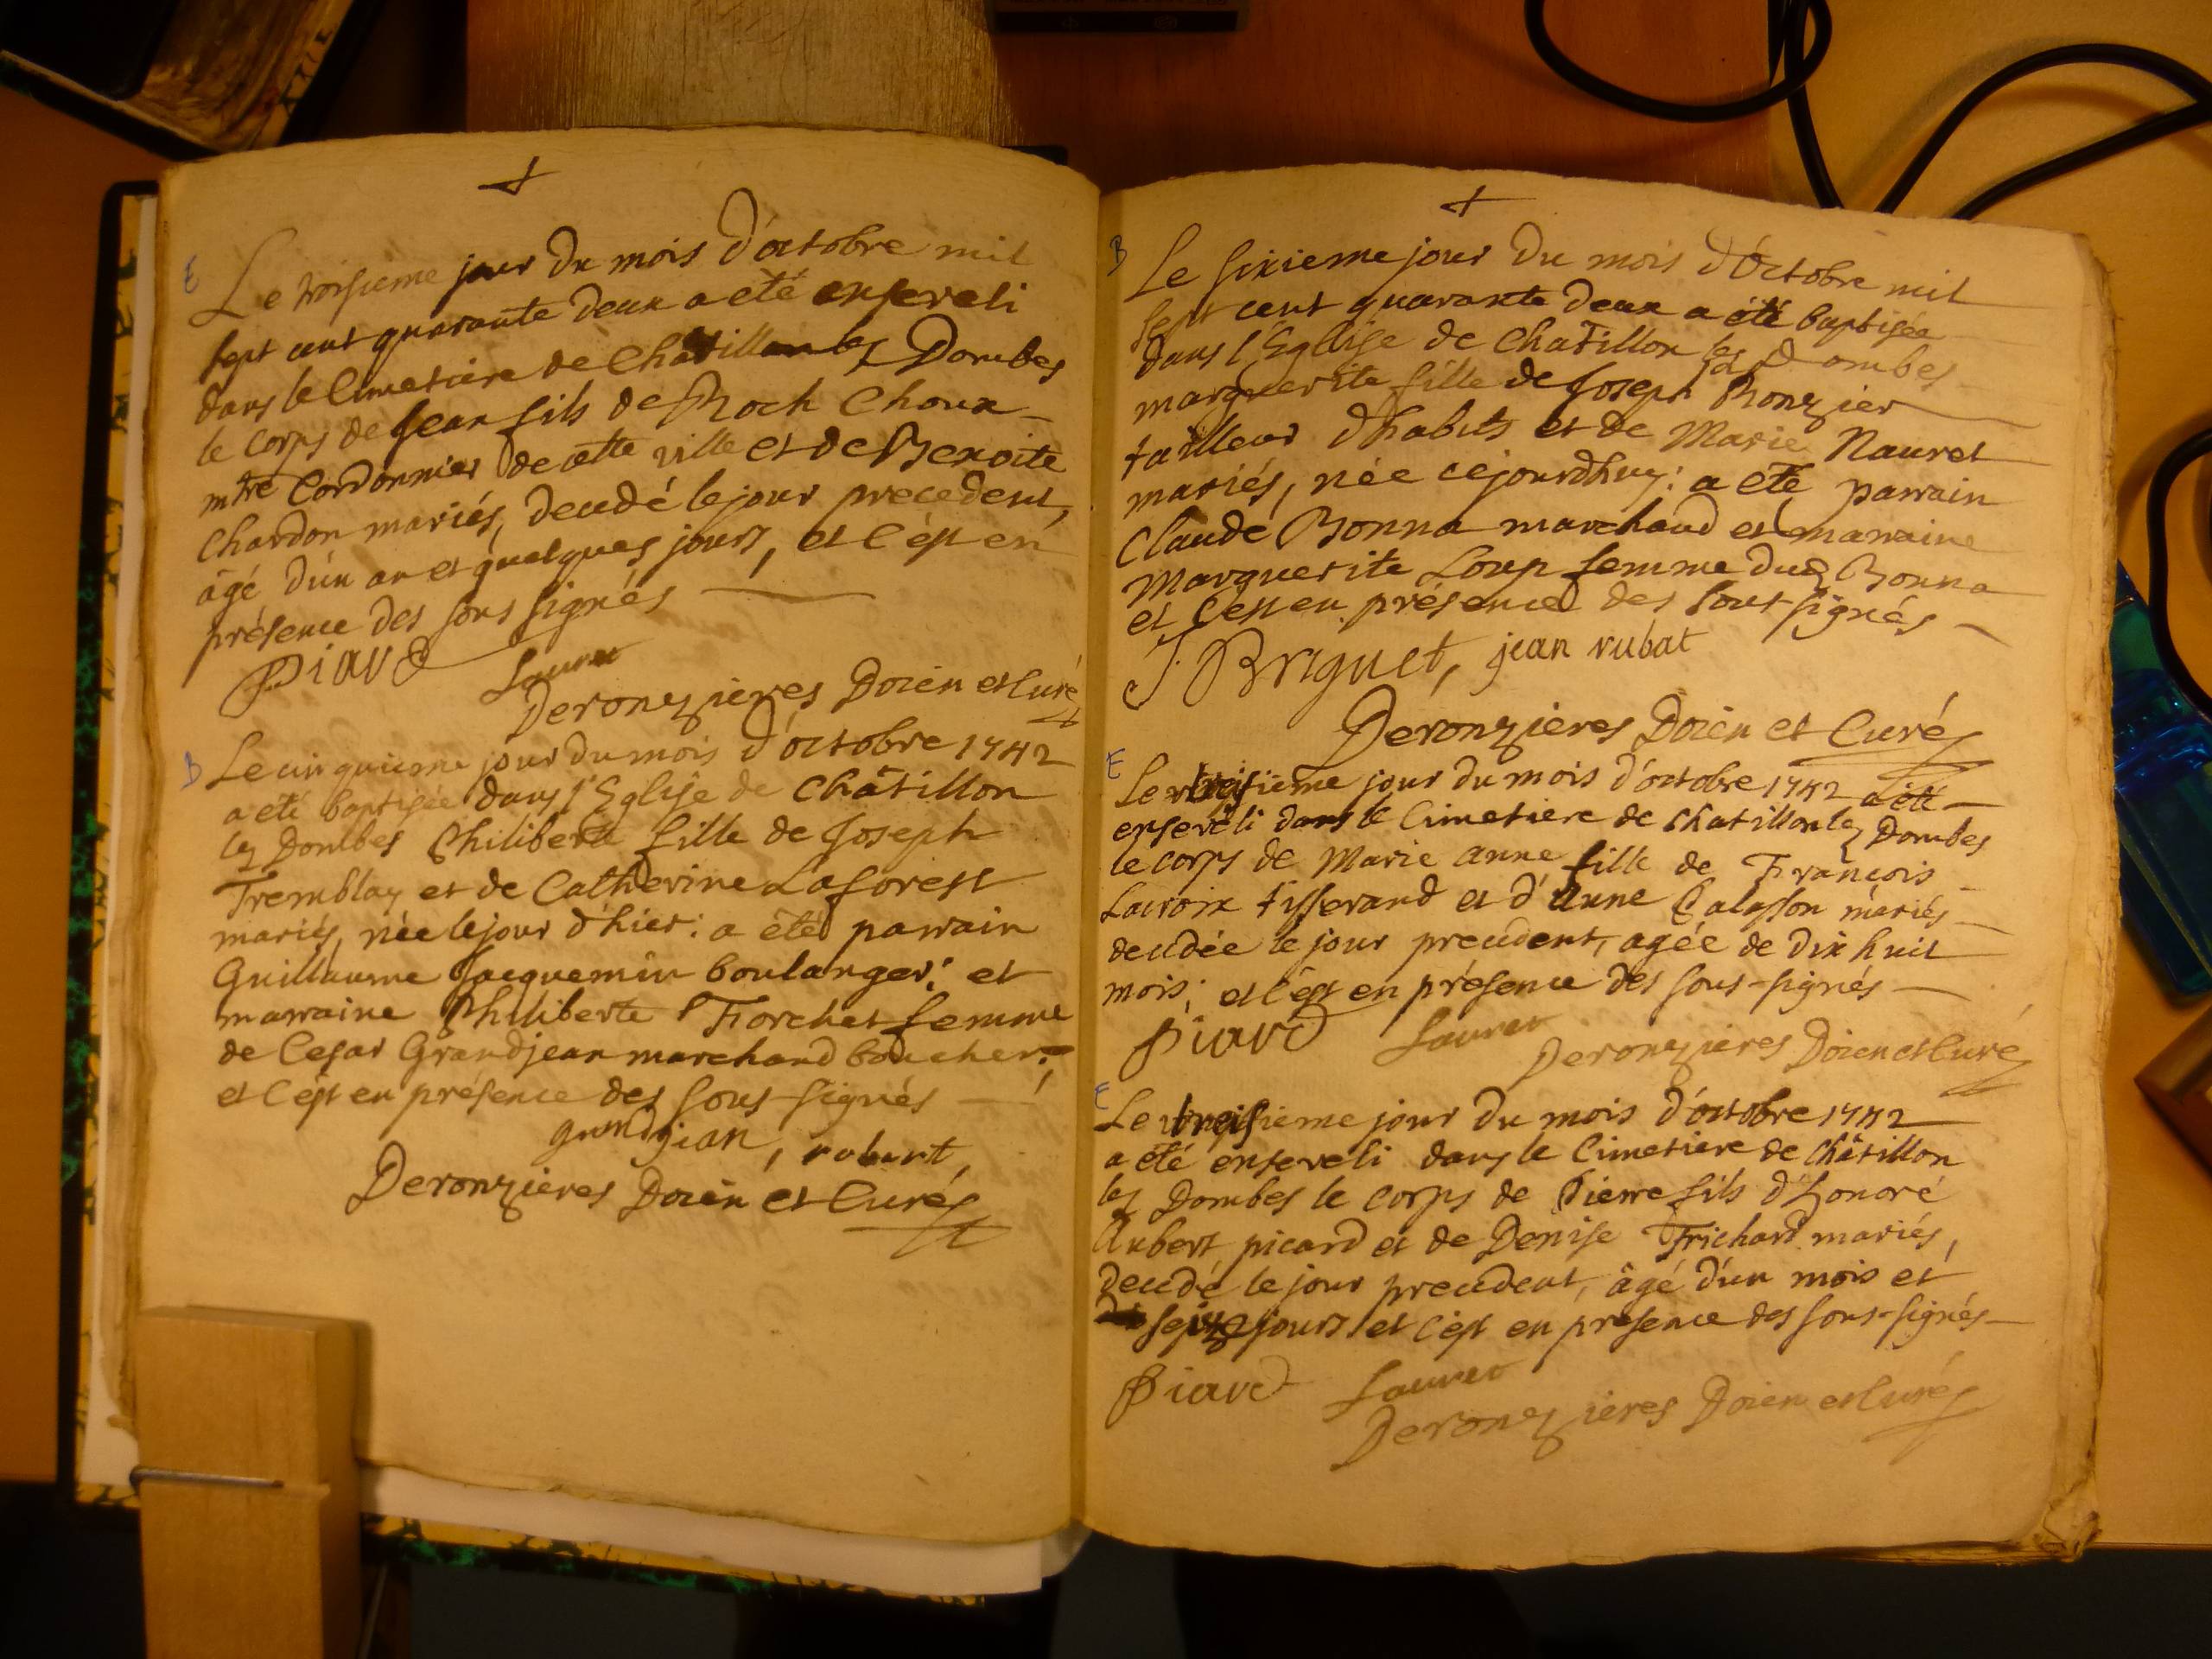 E
Le troisieme jour du mois d'octobre mil
sept cent quarante deux a eté enseveli
dans le Cimetiere de Châtillon les Dombes
le corps de Jean fils de Roch Choux
mtre Cordonnier de cette ville et de Benoite
Chardon mariés, decedé le jour precedent,
âgé d'un an et quelques jours, et c'est en
présence des sous signés
Piard
Lauret
Deronzieres Doien et Curé
B
Le cinquieme jour du mois d'octobre 1742
a eté baptisée dans l'Eglise de Châtillon
lez Dombes Philiberte fille de Joseph
Tremblay et de Catherine Laforest
mariés, née le jour d'hier: a été parrain
Guillaume Jacquemin boulanger: et
marraine Philiberte Forchet femme
de Cesar Grandjean marchand boucher:
et c'est en présence des sous-signés
grandjean, robert,
Deronzieres Doien et Curé
B
Le sixieme jour du mois d'Octobre mil
sept cent quarante deux a été baptisée
dans l'Eglise de Chatillon les Dombes
marguerite fille de Joseph Ronzier
tailleur d'habits et de Marie Nauret
mariés, née cejourdhuy: a eté parrain
Claude Bonna marchand et marraine
Marguerite Loup femme dud Bonna
et c'est en présence des sous-signés
J Briguet, jean rubat
Deronzieres Doien et Curé
E
Le treisieme jour du mois d'octobre 1742 a été
enseveli dans le Cimetiere de Chatillon lez Dombes
le corps de Marie Anne fille de François
Lacroix tisserand et d'Anne mariés
decedée le jour precedent, agée de dix huit
mois; et c'est en présence des sous-signés
Piard
Lauret
Deronzieres Doien et Curé
E
Le treisieme jour du mois d'octobre 1742
a été enseveli dans le Cimetiere de Châtillon
lez Dombes le corps de Pierre fils d'honoré
Aubert picard et de Denise Trichard mariés,
decedé le jour precedent, âgé d'un mois et
seize jours et c'est en presence des sous-signés
Piard
Lauret
Deronzieres Doien et Curé